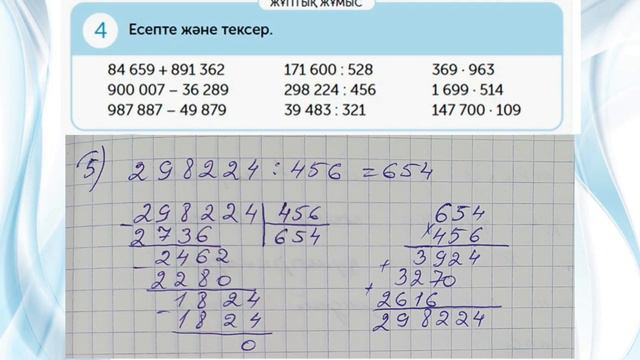 ЖҰПТЫҚ ЖҰМЫС
4 Есепте және тексер.
84 659 + 891 362 171 600 : 528 369 · 963
900 007 – 36 289 298 224 : 456 1 699 · 514
987 887 – 49 879 39 483 : 321 147 700 · 109
5) 298224 : 456 = 654
- 298224 | 456
2736 654
- 2462
2280
- 1824
1824
0
654
× 456
3924
+ 3270
+ 2616
298224